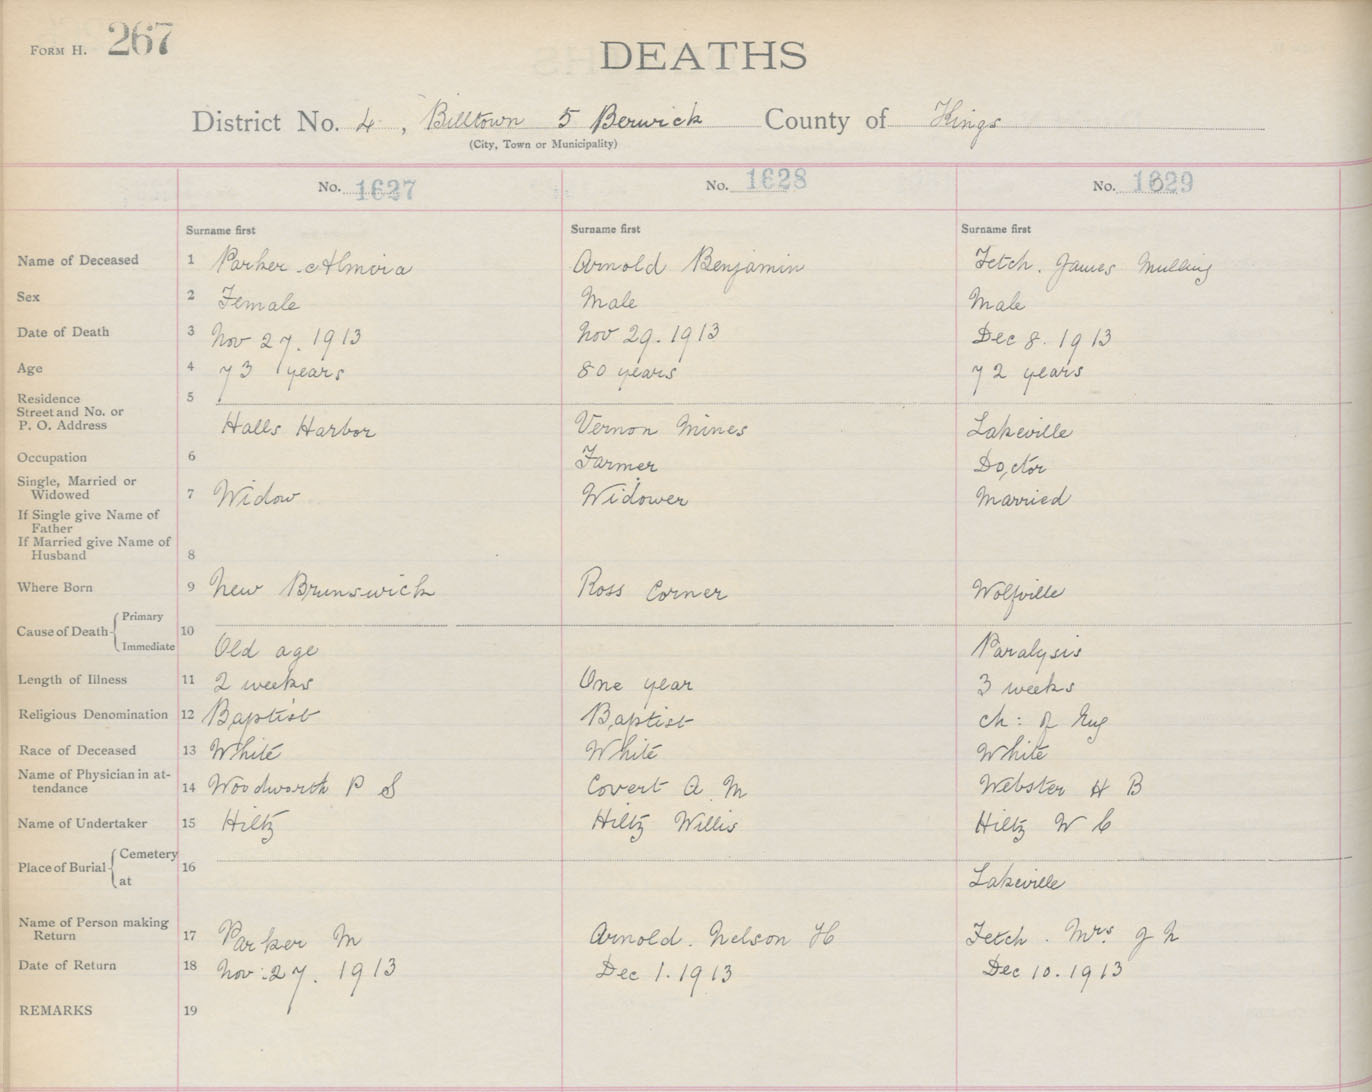 FORM H. 267
DEATHS
District No. 4, Billtown 5 Berwick County of Kings
(City, Town or Municipality)
No. 1627 No. 1628 No. 1629
Surname first Surname first Surname first
Name of Deceased 1 Parker Almira Arnold Benjamin Fetch. James
Sex 2 Female Male Male
Date of Death 3 Nov 27. 1913 Nov 29. 1913 Dec 8. 1913
Age 4 73 years 80 years 72 years
Residence 5
Street and No. or
P. O. Address Halls Harbor Vernon Mines Lakeville
Occupation 6 Farmer Doctor
Single, Married or
Widowed 7 Widow Widower Married
If Single give Name of
Father
If Married give Name of
Husband 8
Where Born 9 New Brunswick Ross Corner Wolfville
Cause of Death Primary 10
Immediate Old age Paralysis
Length of Illness 11 2 weeks One year 3 weeks
Religious Denomination 12 Baptist Baptist Ch: of Eng
Race of Deceased 13 White White White
Name of Physician in at-
tendance 14 Woodworth P S Covert A M Webster H B
Name of Undertaker 15 Hiltz Hiltz Willis Hiltz W C
Place of Burial Cemetery 16
at Lakeville
Name of Person making
Return 17 Parker M Arnold. Nelson H Fetch. Mrs. J N
Date of Return 18 Nov. 27. 1913 Dec 1. 1913 Dec 10. 1913
REMARKS 19